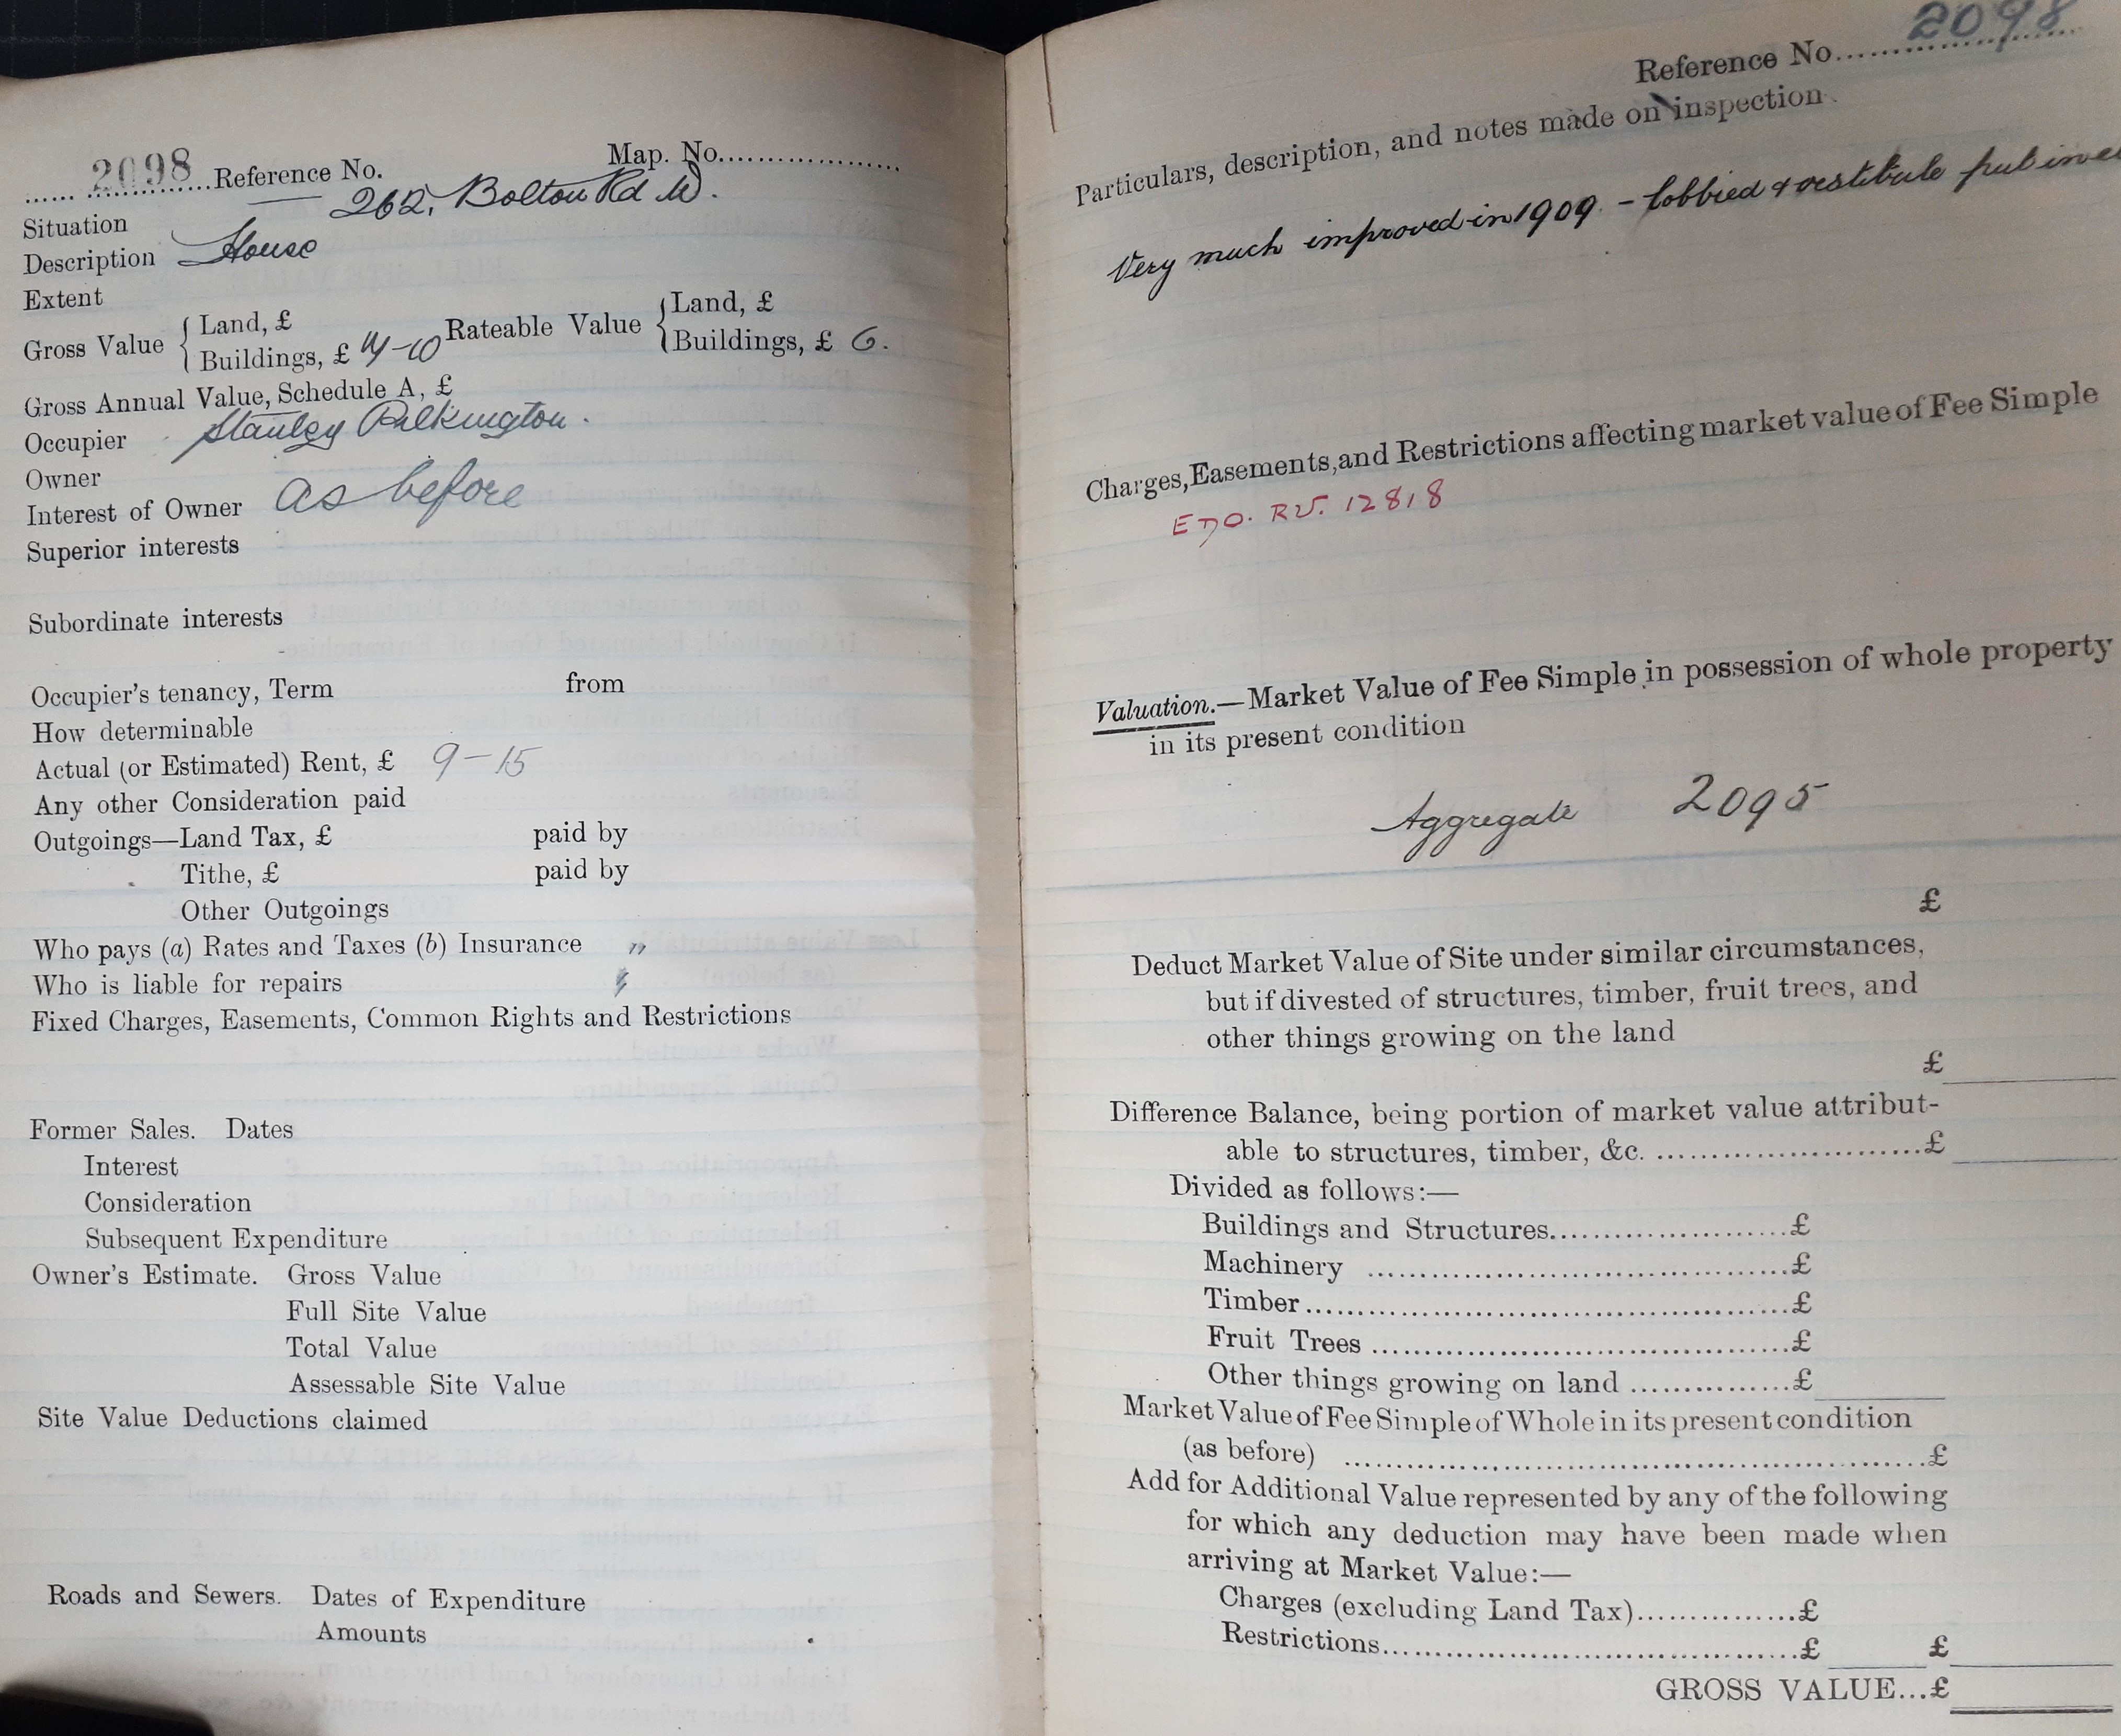 2098 Reference No. Map. No.
Situation 262, Bolton Rd W.
Description House
Extent
Gross Value { Land, £
Buildings, £ -10 Rateable Value { Land, £
Buildings, £ 6.
Gross Annual Value, Schedule A, £
Occupier Stanley Pilkington.
Owner
Interest of Owner as before
Superior interests
Subordinate interests
Occupier's tenancy, Term from
How determinable
Actual (or Estimated) Rent, £ 9-15
Any other Consideration paid
Outgoings—Land Tax, £ paid by
Tithe, £ paid by
Other Outgoings
Who pays (a) Rates and Taxes (b) Insurance "
Who is liable for repairs
Fixed Charges, Easements, Common Rights and Restrictions
Former Sales. Dates
Interest
Consideration
Subsequent Expenditure
Owner's Estimate. Gross Value
Full Site Value
Total Value
Assessable Site Value
Site Value Deductions claimed
Roads and Sewers. Dates of Expenditure
Amounts
Reference No. 2098
Particulars, description, and notes made on inspection
Very much improved in 1909. - lobbied & vestibule put in
Charges, Easements, and Restrictions affecting market value of Fee Simple
RV. 12818
Valuation.—Market Value of Fee Simple in possession of whole property
in its present condition
Aggregate 2095
£
Deduct Market Value of Site under similar circumstances,
but if divested of structures, timber, fruit trees, and
other things growing on the land
£
Difference Balance, being portion of market value attribut-
able to structures, timber, &c. £
Divided as follows:—
Buildings and Structures £
Machinery £
Timber £
Fruit Trees £
Other things growing on land £
Market Value of Fee Simple of Whole in its present condition
(as before) £
Add for Additional Value represented by any of the following
for which any deduction may have been made when
arriving at Market Value:—
Charges (excluding Land Tax) £
Restrictions £ £
GROSS VALUE...£